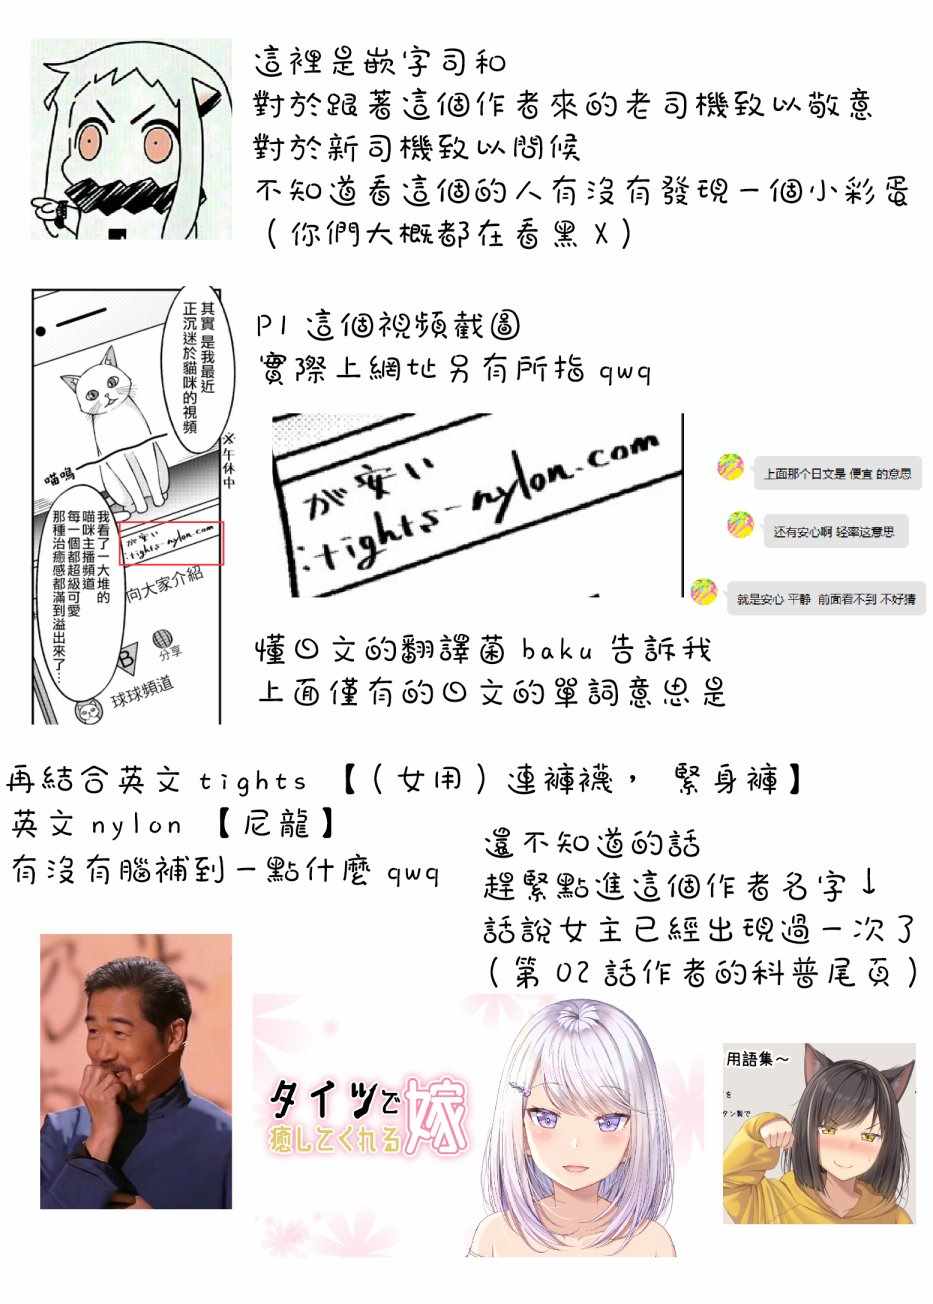 這裡是嵌字司和
對於跟著這個作者來的老司機致以敬意
對於新司機致以問候
不知道看這個的人有沒有發現一個小彩蛋
（你們大概都在看黑X）
其實 是我最近
正沉迷於貓咪的視頻
※午休中
喵嗚
我看了一大堆的
喵咪主播頻道
每一個都超級可愛
那種治癒感都滿到溢出來了…
が安い
:tights-nylon.com
向大家介紹
B
分享
球球頻道
P1 這個視頻截圖
實際上網址另有所指 qwq
が安い
:tights-nylon.com
上面那个日文是 便宜 的意思
还有安心啊 轻率这意思
就是安心 平静 前面看不到 不好猜
懂日文的翻譯菌 baku 告訴我
上面僅有的日文的單詞意思是
再結合英文 tights 【（女用）連褲襪， 緊身褲】
英文 nylon 【尼龍】
有沒有腦補到一點什麼 qwq
還不知道的話
趕緊點進這個作者名字↓
話說女主已經出現過一次了
（第 02 話作者的科普尾頁）
タイツで
癒してくれる嫁
用語集～
を
タン製で